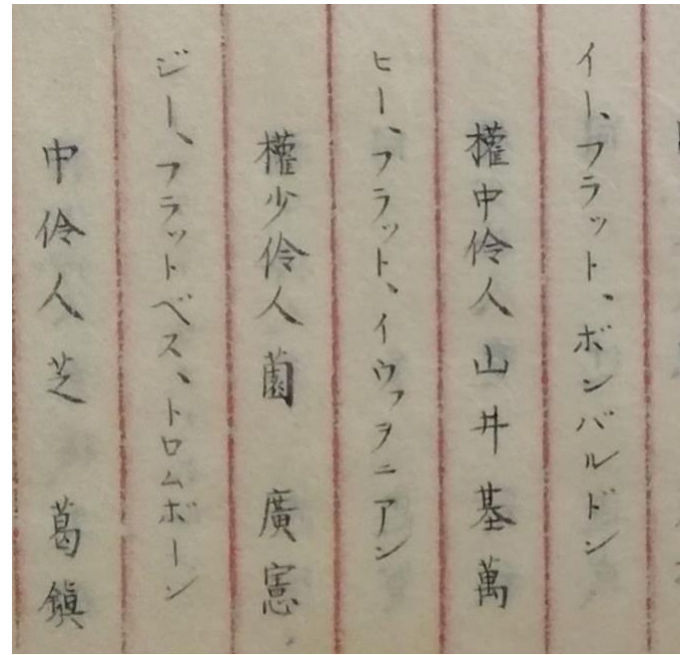 イー、フラット、ボンバルドン
權中伶人 山井基萬
ヒー、フラット、イウフヲニアン
權少伶人 薗 廣憲
ジー、フラットベス、トロムボーン
中伶人 芝 葛鎮